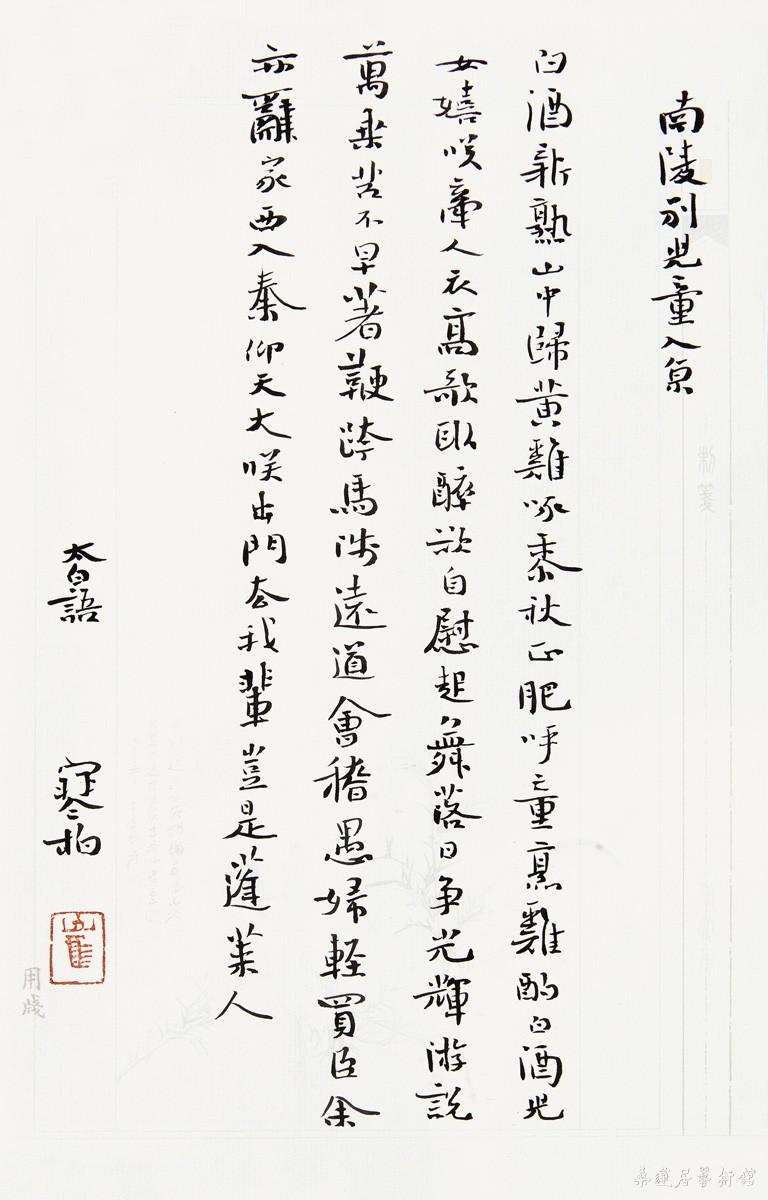 南陵别兒童入京
白酒新熟山中歸黄雞啄黍秋正肥呼童烹雞酌白酒兒
女嬉咲牽人衣高歌取醉欲自慰起舞落日争光輝游説
萬乘苦不早著鞭跨馬涉遠道會稽愚婦輕買臣余
亦辭家西入秦仰天大咲出門去我輩豈是蓬萊人
太白語 寒柏
用牋
桑蓮居藝術館